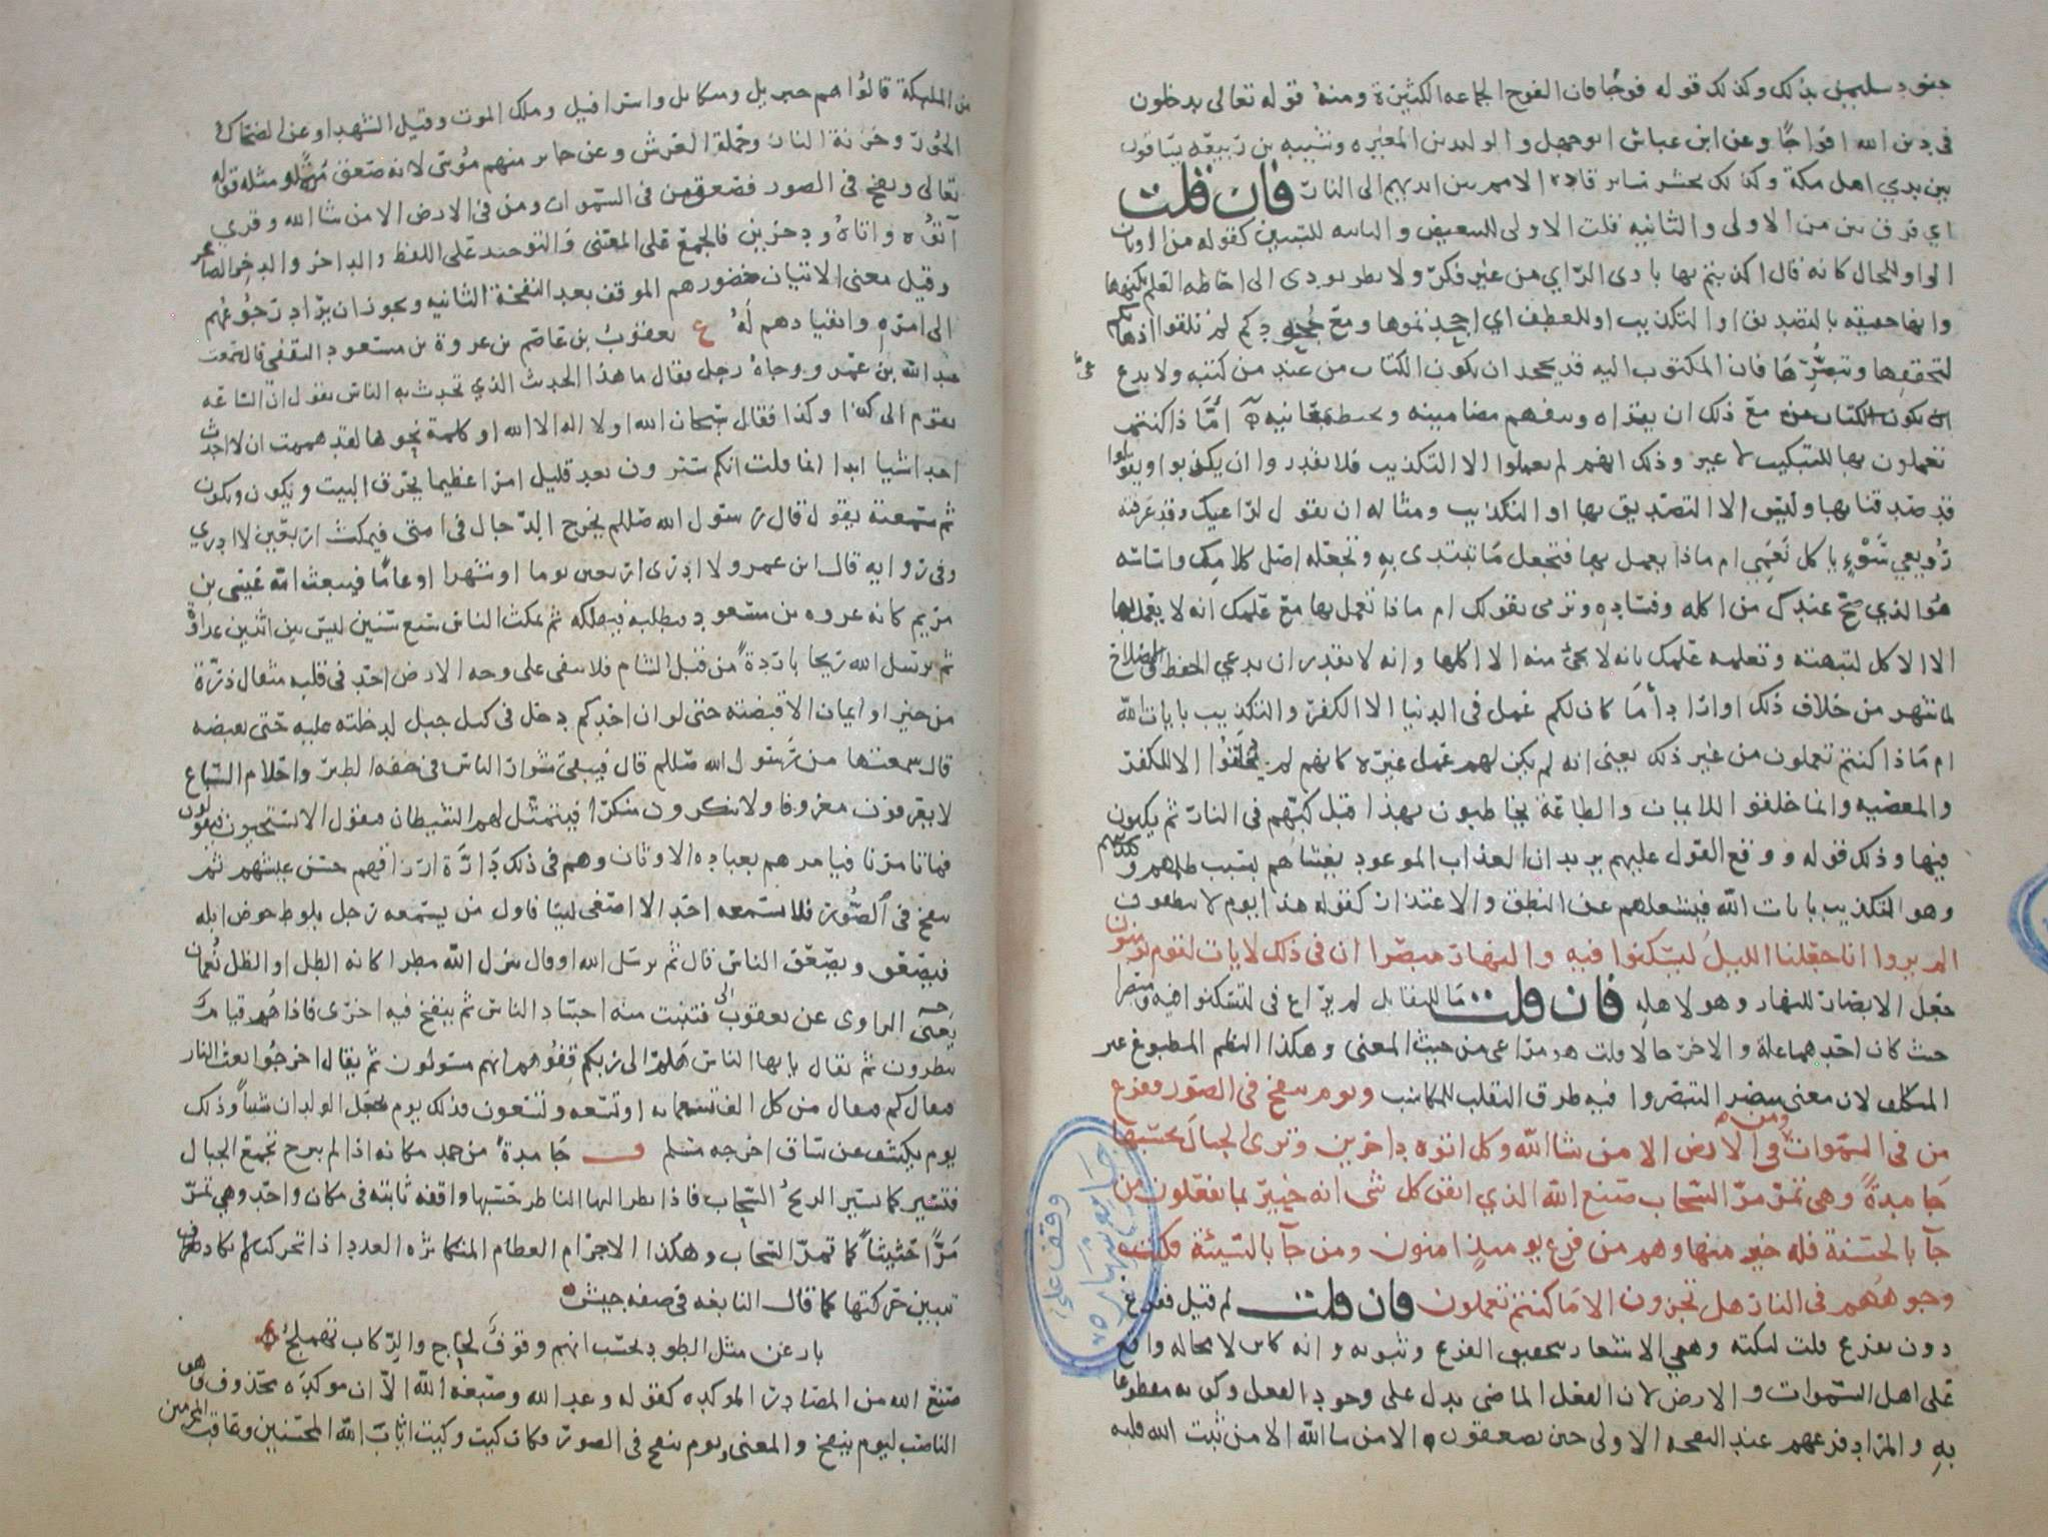 جنود سليمن بذلك وكذلك قوله فوجا فان الفوج الجماعه الكثيرة ومنه قوله تعالى يدخلون
في دين الله افواجا وعن ابن عباس ابو جهل والوليد بن المغيره وشيبه بن ربيعه يساقون
بين يدي اهل مكة وكذلك يحشر ساير قادة الامم بين ايديهم الى النار فان قلت
اي فرق بين من الاولى والثانيه قلت الاولى للتبعيض والثانيه للتبيين كقوله من الاوثان
الواو للحال كانه قال اكذبتم بها بادى الراي من غير فكر ولا نظر يودى الى احاطه العلم بكنهها
وانها حقيقه بالتصديق او التكذيب او للعطف اي اجحدتموها ومع جحودكم لم تلقوا اذهانكم
لتحققها وتبصرها فان المكتوب اليه قد يجحد ان يكون الكتاب من عند من كتبه ولا يدع
مع ذلك ان يقراه ويتفهم مضامينه ويحيط بمعانيه اماذا كنتم
تعملون بها للتبكيت لا غير وذلك انهم لم يعملوا الا التكذيب فلا يقدروا ان يكذبوا ويقولوا
قد صدقنا بها وليس الا التصديق بها او التكذيب ومثاله ان تقول لراعيك وقد عرفته
رويعي سوء ياكل نعمي ام ماذا يعمل بها فتجعل ما تبتدى به وتجعله اصل كلامك واساسه
هو الذي صح عندك من اكله وفساده وترمى بقولك ام ماذا تعمل بها مع علمك انه لا يعمل بها
الا الاكل لتبهته وتعلمه علمك بانه لا يجئ منه الا اكلها وانه لا يقدر ان يدعي الحفظ والاصلاح
لما شهر من خلاف ذلك او اراد اما كان لكم عمل في الدنيا الا الكفر والتكذيب بايات الله
ام ماذا كنتم تعملون من غير ذلك يعنى انه لم يكن لهم عمل غيره كانهم لم يخلقوا الا للكفر
والمعصيه وانما خلقوا للايمان والطاعة يخاطبون بهذا قبل كبهم في النار ثم يكبون
فيها وذلك قوله ووقع القول عليهم يريد ان العذاب الموعود يغشاهم بسبب ظلمهم
وهو التكذيب بايات الله فيشغلهم عن النطق والاعتذار كقوله هذا يوم لا ينطقون
الم يروا انا جعلنا الليل ليسكنوا فيه والنهار مبصرا ان في ذلك لايات لقوم يومنون
جعل الابصار للنهار وهو لاهله فان قلت ما للتقابل لم يراع في ليسكنوا فيه ومبصرا
حيث كان احدهما علة والاخر حالا قلت هو مراعى من حيث المعنى وهكذا النظم المطبوع غير
المتكلف لان معنى مبصرا لتبصروا فيه طرق التقلب للمكاسب ويوم ينفخ في الصور ففزع
من في السموات ومن في الارض الا من شا الله وكل اتوه داخرين وترى الجبال تحسبها
جامدة وهي تمر مر السحاب صنع الله الذي اتقن كل شى انه خبير بما تفعلون من
جآ بالحسنة فله خير منها وهم من فزع يوميذ امنون ومن جآ بالسيئة فكبت
وجوههم في النار هل تجزون الا ما كنتم تعملون فان قلت لم قيل ففزع
دون يفزع قلت لنكته وهي الاشعار بتحقيق الفزع وثبوته وانه كاين لا محاله واقع
على اهل السموات والارض لان الفعل الماضي يدل على وجود الفعل وكونه مقطوعا
به والمراد فزعهم عند النفخه الاولى حين يصعقون الا من شا الله الا من ثبت الله قلبه
من المليكة قالوا هم جبريل وميكايل واسرافيل وملك الموت وقيل الشهدا وعن الضحاك
الحور وخزنة النار وحملة العرش وعن جابر منهم موسى لانه صعق مرة ومثله قوله
تعالى ونفخ في الصور فصعق من في السموات ومن في الارض الا من شا الله وقرى
اتوه واتاه ودخرين فالجمع على المعنى والتوحيد على اللفظ والداخر والدخر الصاغر
وقيل معنى الاتيان حضورهم الموقف بعد النفخة الثانيه ويجوز ان يراد رجوعهم
الى امره وانقيادهم له ع يعقوب بن عاصم بن عروة بن مسعود الثقفي قال سمعت
عبد الله بن عمرو وجاه رجل فقال ما هذا الحديث الذي تحدث به الناس تقول ان الساعه
تقوم الى كذا وكذا فقال سبحان الله او لا اله الا الله او كلمة نحوها لقد هممت ان لا احدث
احدا شيا ابدا انما قلت انكم سترون بعد قليل امرا عظيما يحرق البيت ويكون ويكون
ثم سمعته يقول قال رسول الله صللم يخرج الدجال في امتى فيمكث اربعين لا ادري
وفي روايه قال ابن عمرو لا ادرى اربعين يوما او شهرا او عاما فيبعث الله عيسى بن
مريم كانه عروه بن مسعود فيطلبه فيهلكه ثم يمكث الناس سبع سنين ليس بين اثنين عداوة
ثم يرسل الله ريحا باردة من قبل الشام فلا يبقى على وجه الارض احد في قلبه مثقال ذرة
من خير او ايمان الا قبضته حتى لو ان احدكم دخل في كبد جبل لدخلته عليه حتى تقبضه
قال سمعتها من رسول الله صللم قال فيبقى شرار الناس في خفه الطير واحلام السباع
لا يعرفون معروفا ولا ينكرون منكرا فيتمثل لهم الشيطان فيقول الا تستحيون فيقولون
فما تامرنا فيامرهم بعباده الاوثان وهم في ذلك دارة ارزاقهم حسن عيشهم ثم
ينفخ في الصور فلا يسمعه احد الا اصغى ليتا فاول من يسمعه رجل يلوط حوض ابله
فيصعق ويصعق الناس قال ثم يرسل الله او قال ينزل الله مطرا كانه الطل او الظل نعمان
يعنى الراوى عن يعقوب فتنبت منه اجساد الناس ثم ينفخ فيه اخرى فاذا هم قيام
ينظرون ثم يقال يايها الناس هلم الى ربكم قفوهم انهم مسئولون ثم يقال اخرجوا بعث النار
فيقال كم فيقال من كل الف تسعمايه وتسعه وتسعون فذلك يوم يجعل الولدان شيبا وذلك
يوم يكشف عن ساق اخرجه مسلم ف جامدة من جمد مكانه اذا لم يبرح تجمع الجبال
فتسير كما تسير الريح السحاب فاذا نظر اليها الناظر حسبها واقفه ثابته في مكان واحد وهي تمر
مرا حثيثا كما تمر السحاب وهكذا الاجرام العظام المتكاثره العدد اذا تحركت لا تكاد
تتبين حركتها كما قال النابغه في صفه جيش
بارعن مثل الطود تحسب انهم وقوف لحاج والركاب تهملج
صنع الله من المصادر الموكده كقوله وعد الله وصبغه الله الا ان موكده محذوف وهو
الناصب ليوم ينفخ والمعنى ويوم ينفخ في الصور فكان كيت وكيت اثاب الله المحسنين وعاقب المجرمين
وقف على